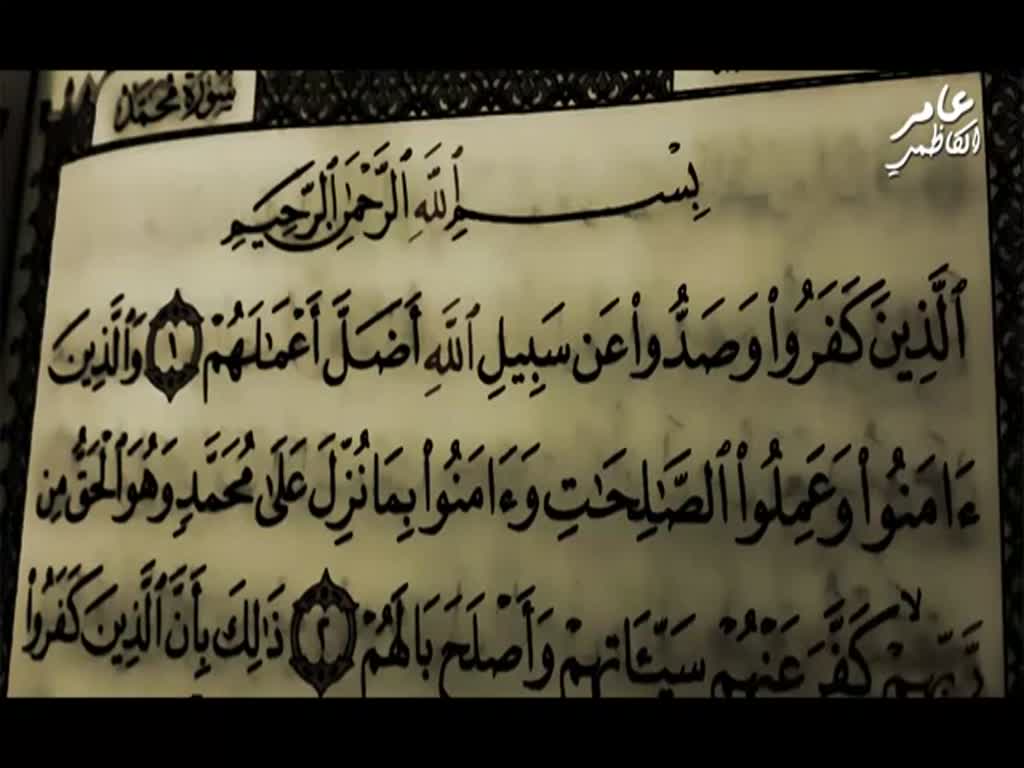 سورة محمد
عامر
الكاظمي
بِسْمِ ٱللَّهِ ٱلرَّحْمَٰنِ ٱلرَّحِيمِ
ٱلَّذِينَ كَفَرُوا۟ وَصَدُّوا۟ عَن سَبِيلِ ٱللَّهِ أَضَلَّ أَعْمَٰلَهُمْ ١ وَٱلَّذِينَ
ءَامَنُوا۟ وَعَمِلُوا۟ ٱلصَّٰلِحَٰتِ وَءَامَنُوا۟ بِمَا نُزِّلَ عَلَىٰ مُحَمَّدٍ وَهُوَ ٱلْحَقُّ مِن
رَّبِّهِمْ ۙ كَفَّرَ عَنْهُمْ سَيِّـَٔاتِهِمْ وَأَصْلَحَ بَالَهُمْ ٢ ذَٰلِكَ بِأَنَّ ٱلَّذِينَ كَفَرُوا۟